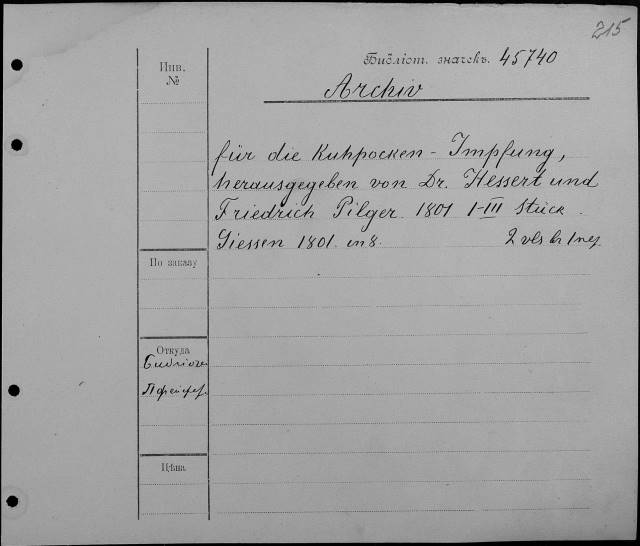 215
Инв.
№
Библіот. значекъ. 45740
Archiv
für die Kuhpocken-Impfung,
herausgegeben von Dr. Hessert und
Friedrich Pilger 1801 I-III Stück.
Giessen 1801. in 8. 2 vls
По заказу
Откуда
Цѣна